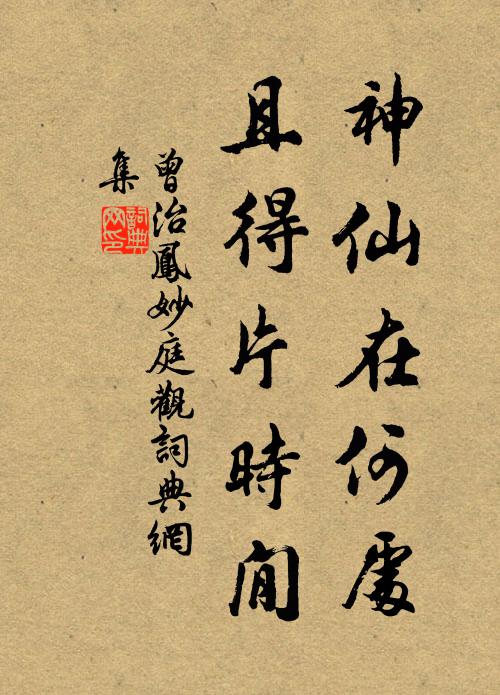 神仙在何處
且得片時閒
曾治鳳妙庭觀詞典網
集
詞典网印